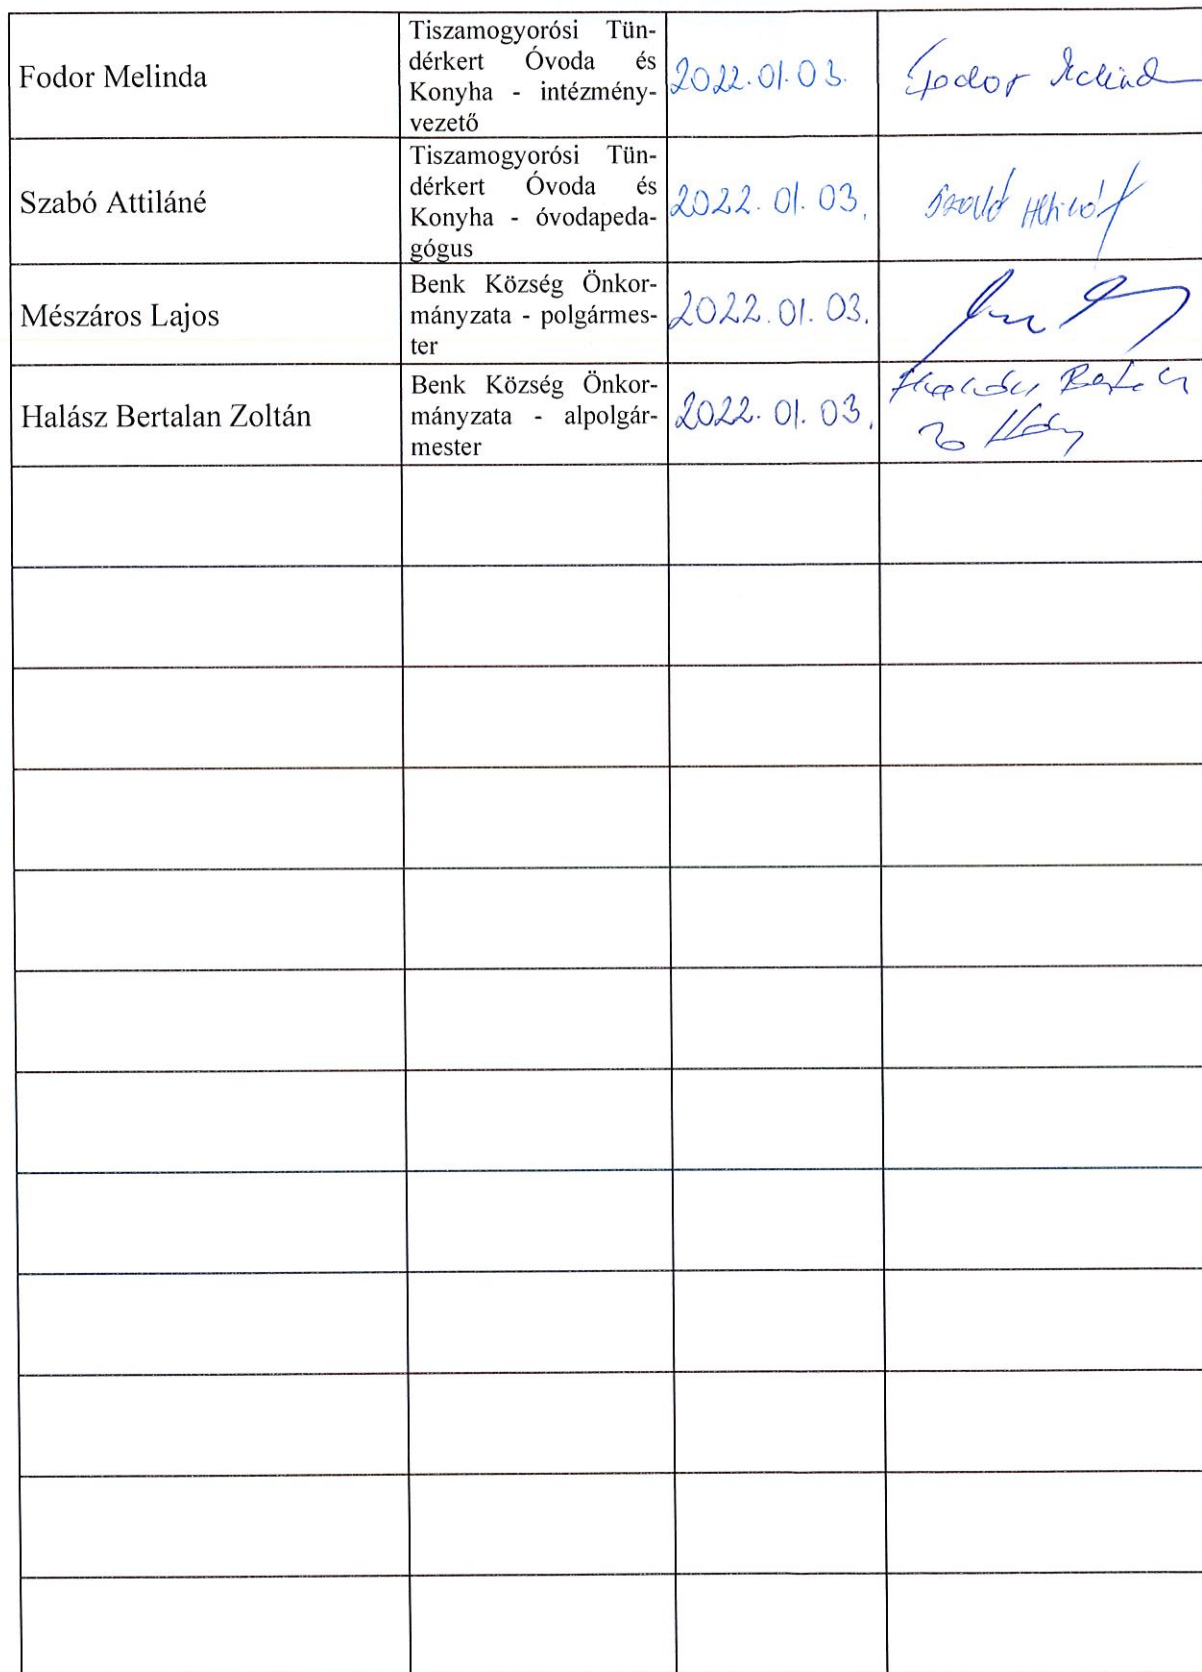 Fodor Melinda
Tiszamogyorósi Tün-
dérkert Óvoda és
Konyha - intézmény-
vezető
2022.01.03.
Fodor Melind
Szabó Attiláné
Tiszamogyorósi Tün-
dérkert Óvoda és
Konyha - óvodapeda-
gógus
2022.01.03.
Szabó
Mészáros Lajos
Benk Község Önkor-
mányzata - polgármes-
ter
2022.01.03.
Halász Bertalan Zoltán
Benk Község Önkor-
mányzata - alpolgár-
mester
2022.01.03.